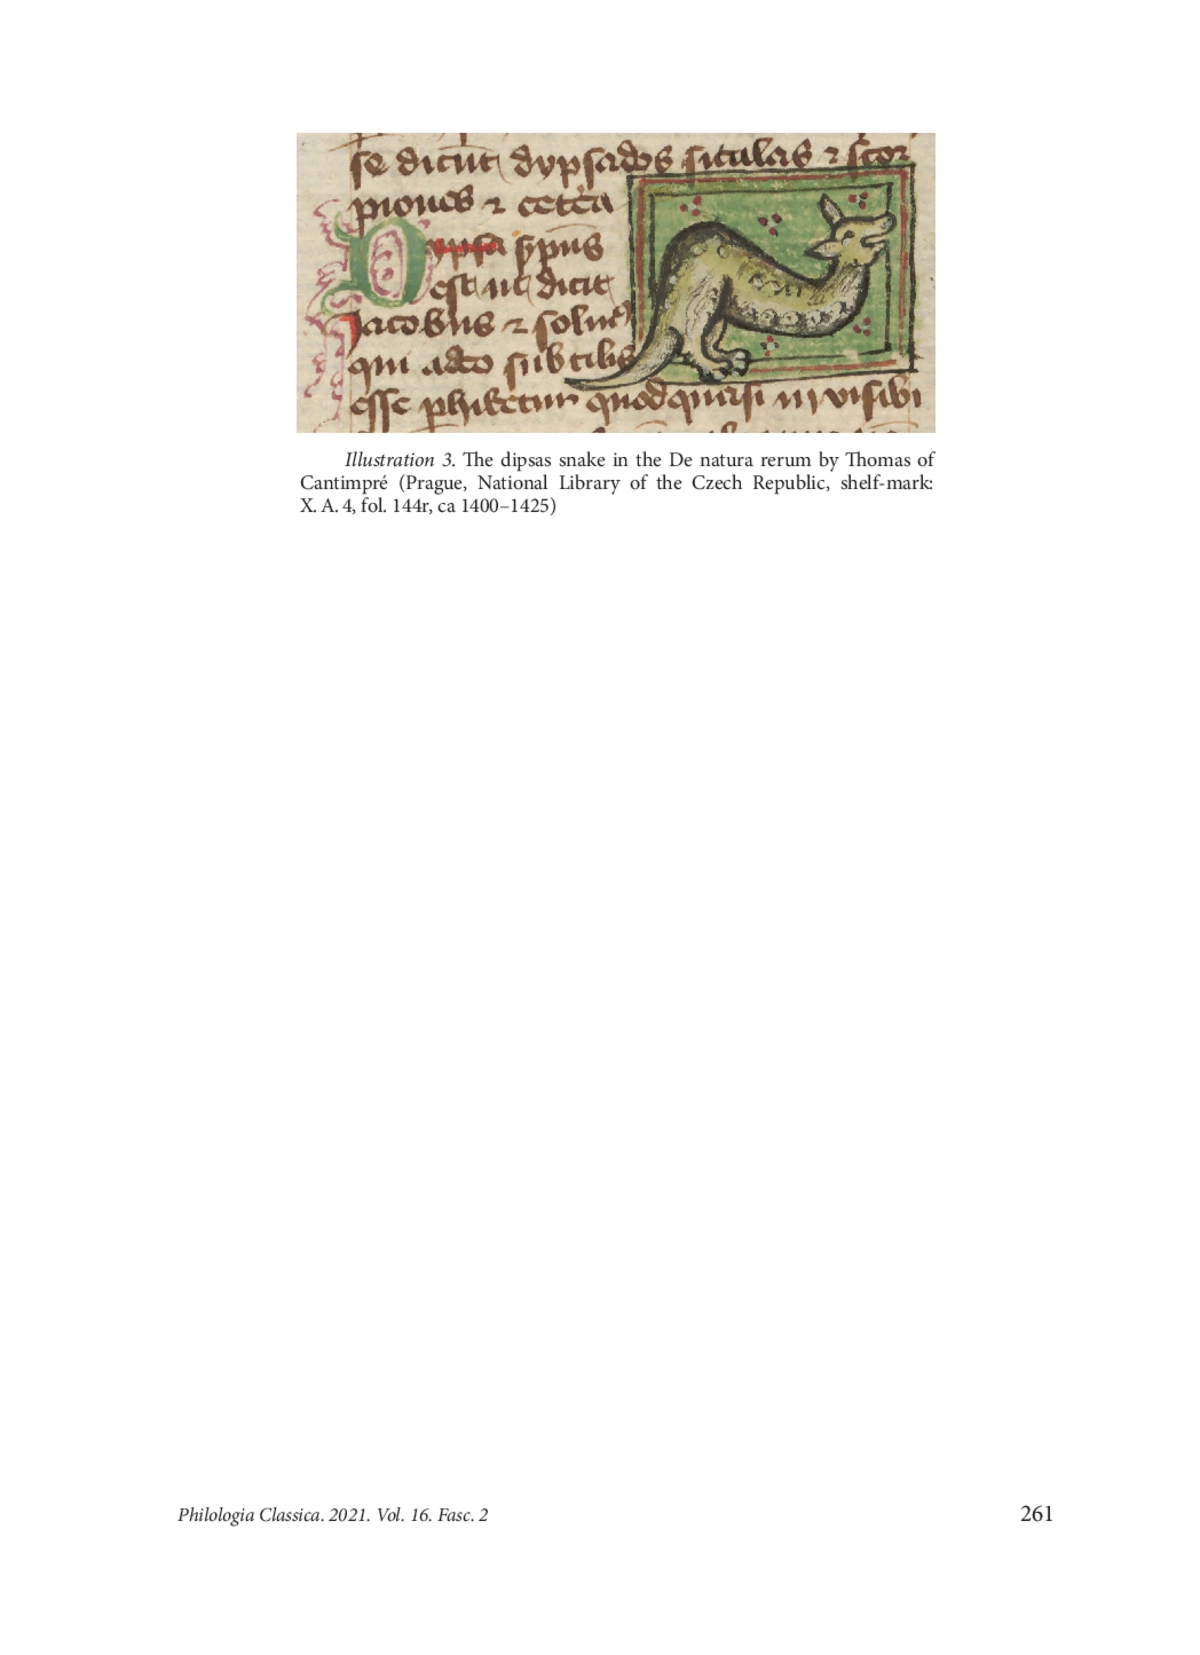 se dicūt dypsades situlas ⁊ scor
piones ⁊ cetēa
Dypsa sp̄ns
est ut dicit
Jacobus ⁊ solin᷒
qui adeo subtilis
esse phibetur quod quasi īvisibi
Illustration 3. The dipsas snake in the De natura rerum by Thomas of
Cantimpré (Prague, National Library of the Czech Republic, shelf-mark:
X. A. 4, fol. 144r, ca 1400–1425)
Philologia Classica. 2021. Vol. 16. Fasc. 2
261